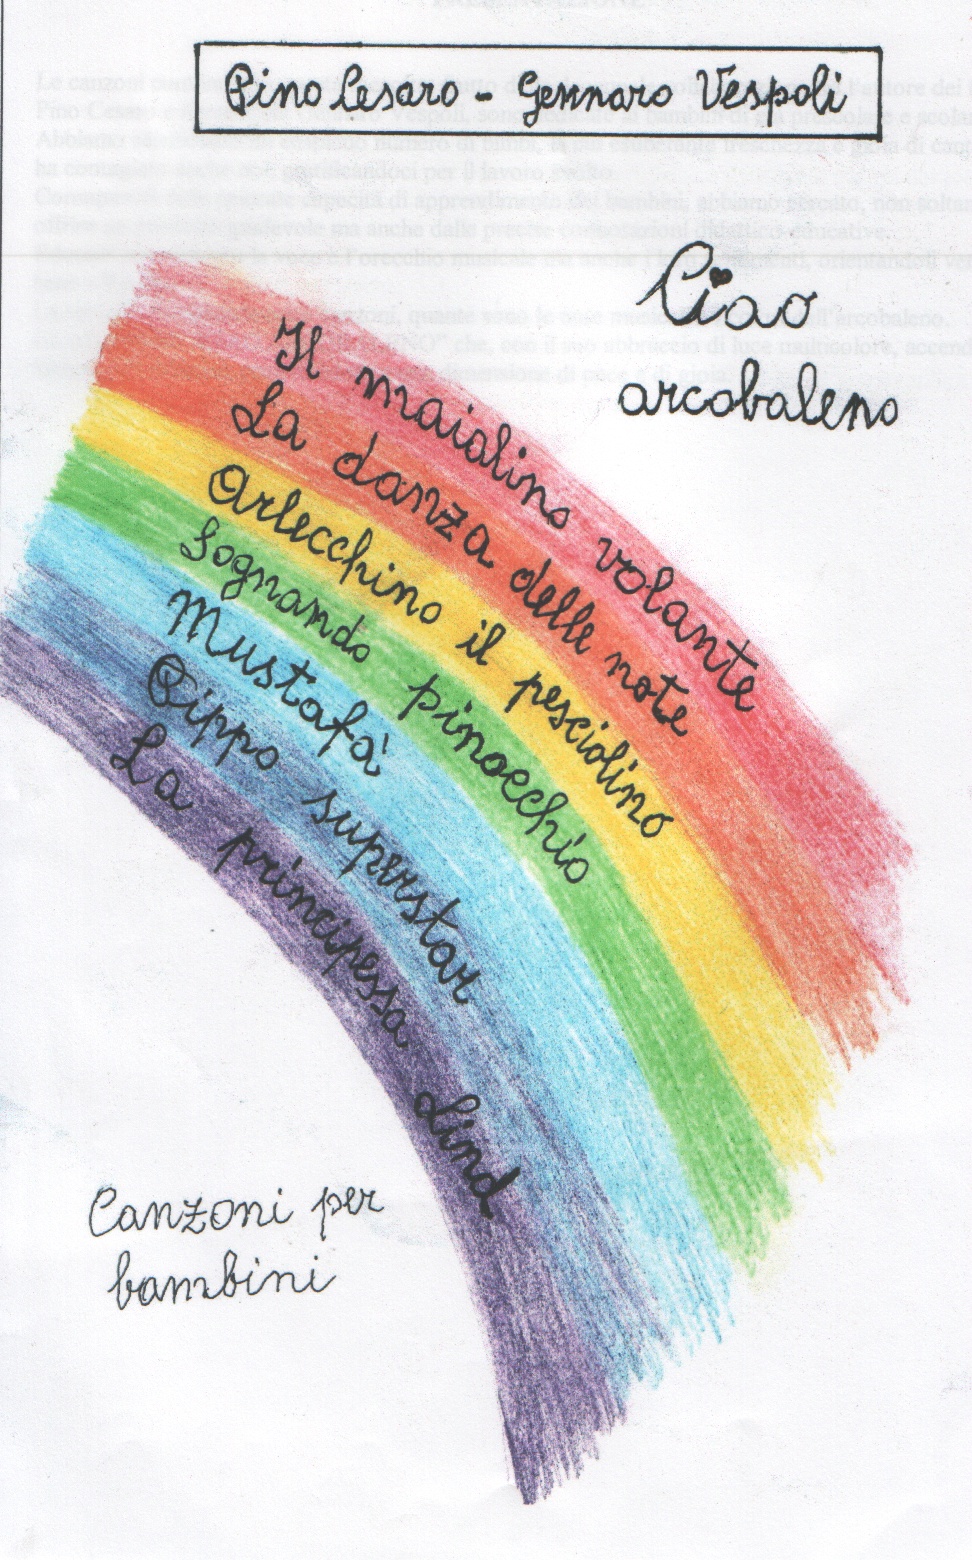 Pino Cesaro - Gennaro Vespoli
Ciao
arcobaleno
Il maialino volante
La danza delle note
Arlecchino il pesciolino
Sognando pinocchio
Mustafà
Pippo superstar
La principessa Lind
Canzoni per
bambini